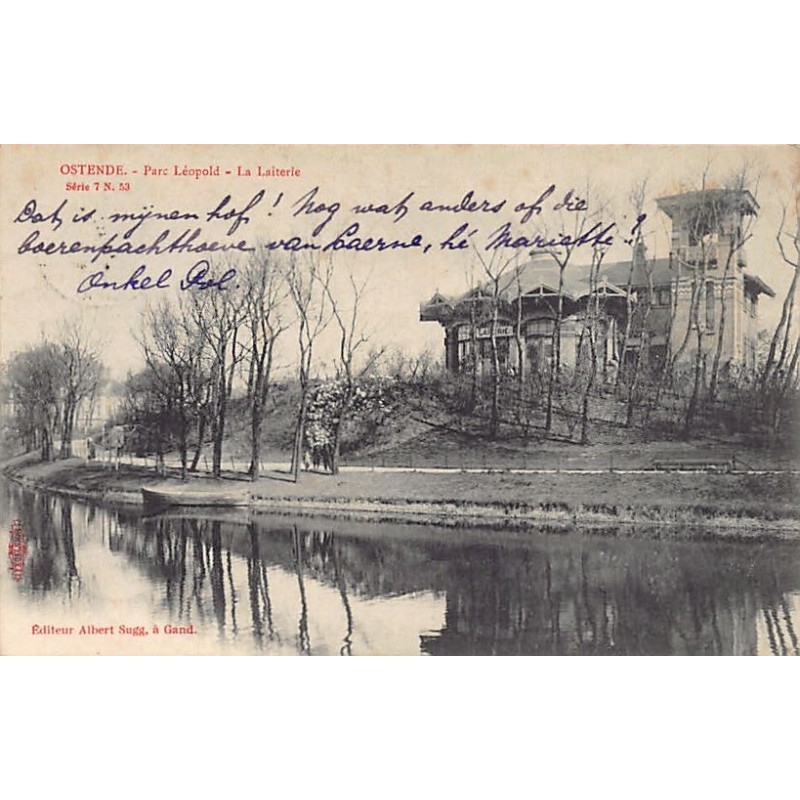 OSTENDE. - Parc Léopold - La Laiterie
Série 7 N. 53
Dat is mijnen hof! Nog wat anders of die
boerenpachthoeve van Laerne, hé Mariette!?
Onkel Pol.
LAITERIE
Éditeur Albert Sugg, à Gand.